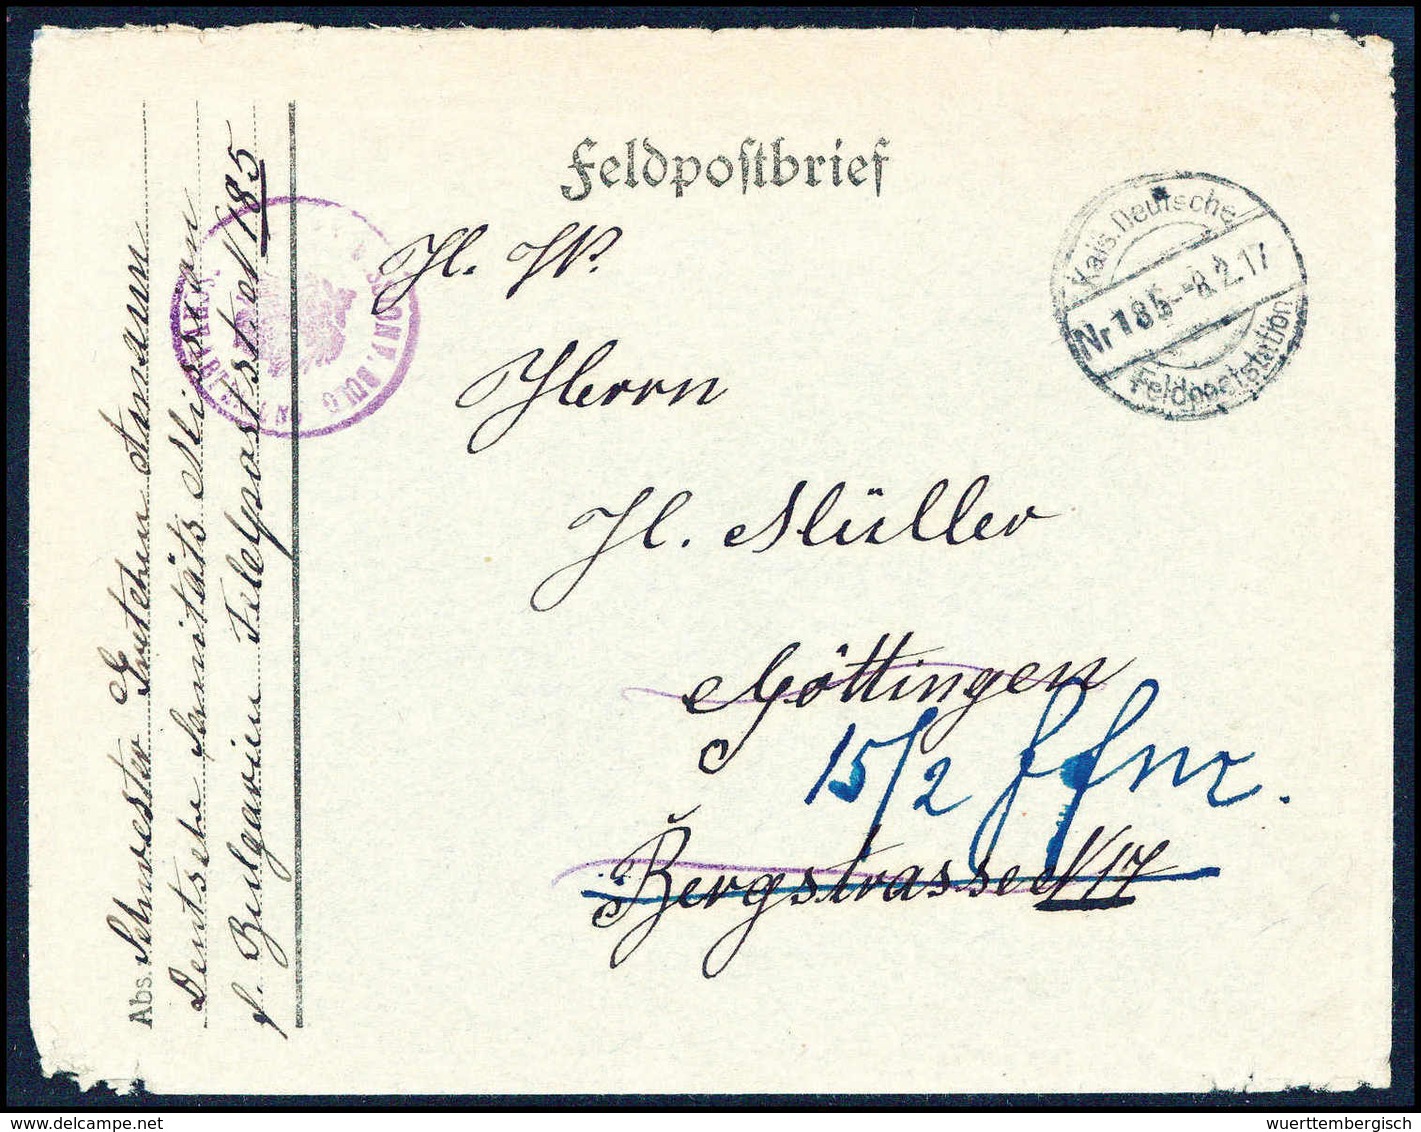 Feldpostbrief
Kais. Deutsche
Nr 185 - 8 2.17
Feldpoststation
H. W.
Herrn
H. Müller
Göttingen
15/2
Bergstrasse N 17
Abs. Schwester Gretchen
Deutsche Sanitäts Mission
f. Bulgarien Feldpoststat N 185
wuerttembergisch